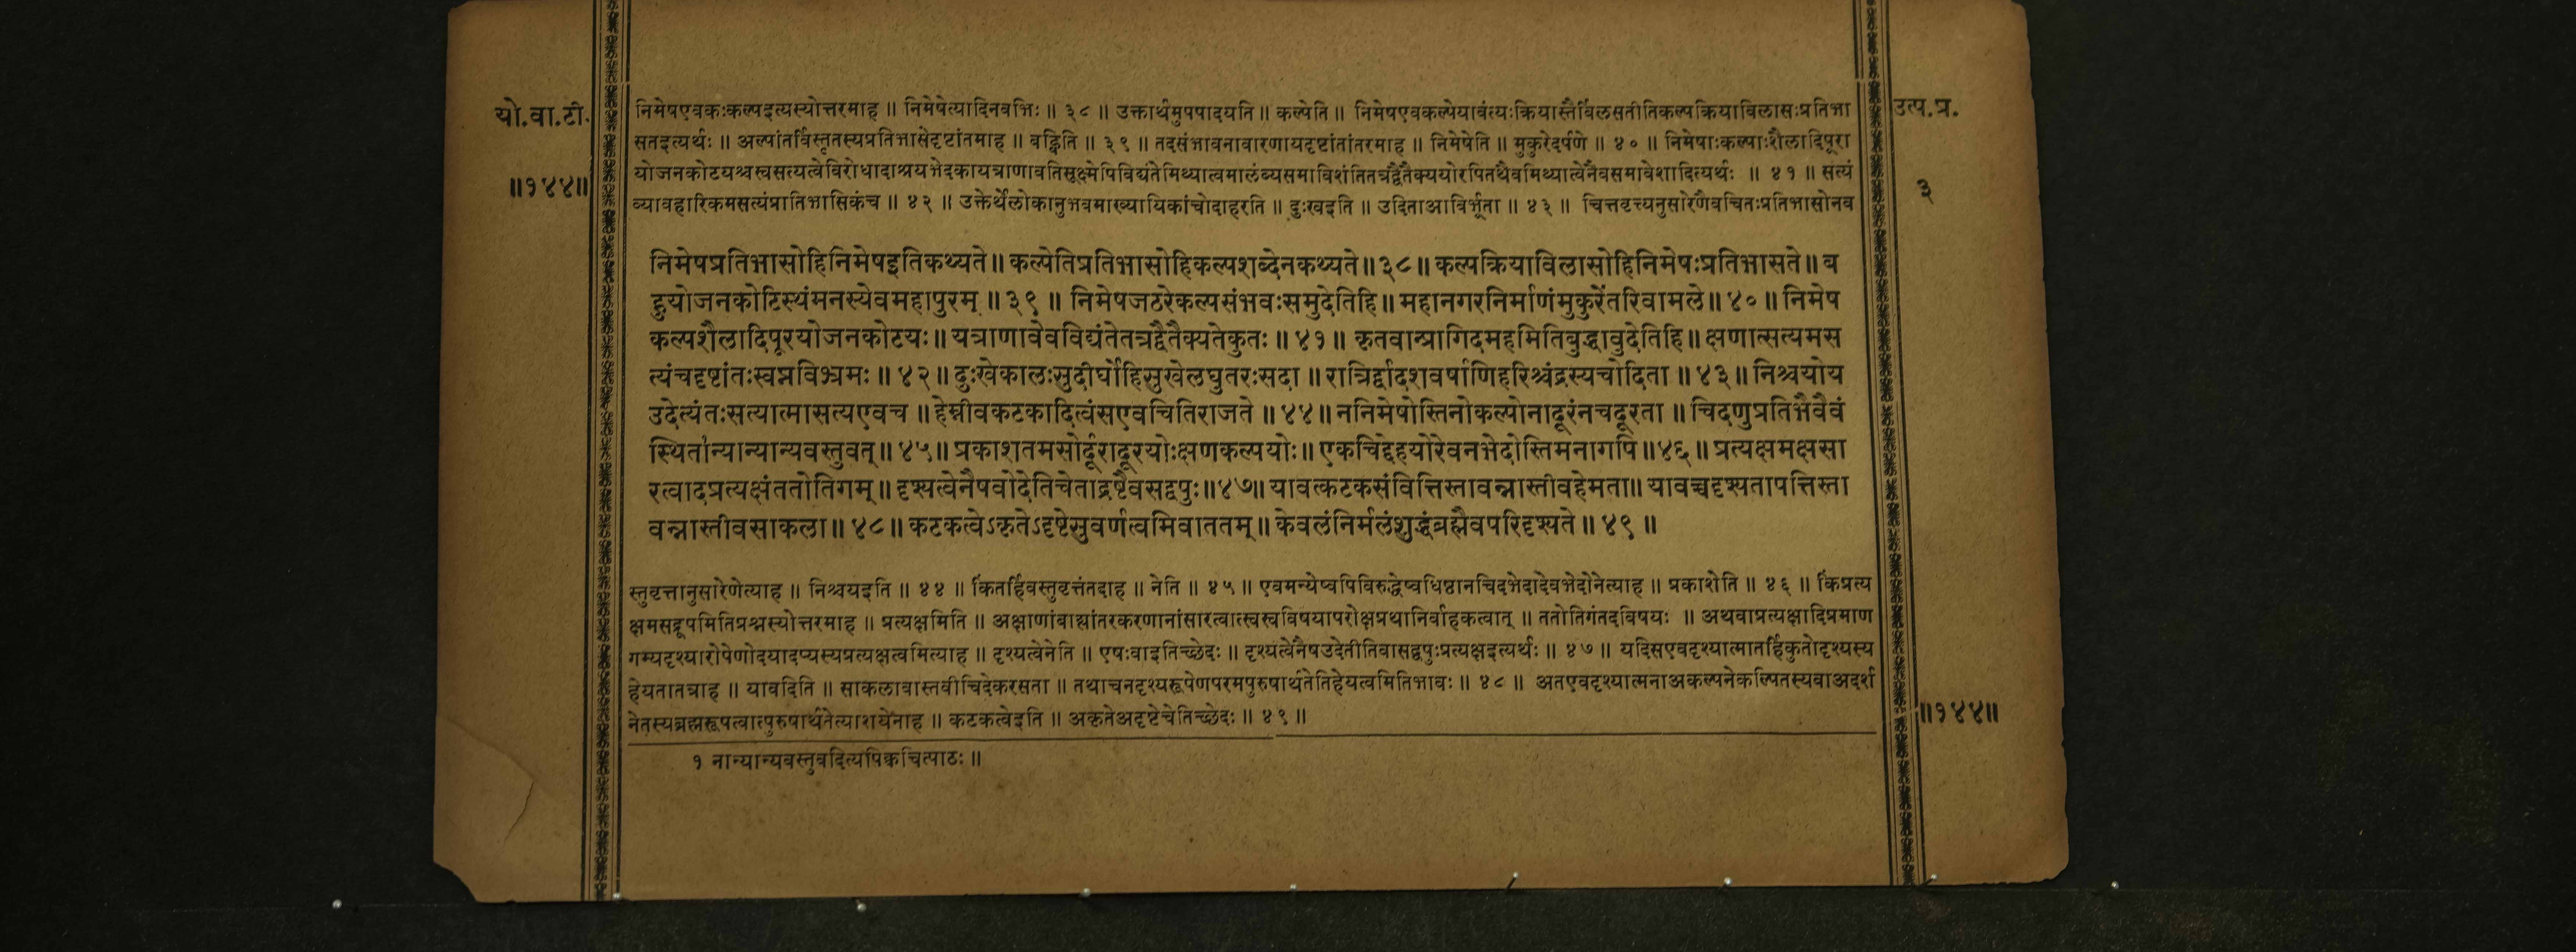 यो.वा.टी.
॥१४४॥
उत्प.प्र.
३
निमेषएवकःकल्पइत्यस्योत्तरमाह ॥ निमेषेत्यादिनवभिः ॥ ३८ ॥ उक्तार्थमुपपादयति ॥ कल्पेति ॥ निमेषएवकल्पेयावंत्यःक्रियास्तैर्विलसतीतिकल्पक्रियाविलासःप्रतिभा
सतइत्यर्थः ॥ अल्पांतर्विस्तृतस्यप्रतिभासेदृष्टांतमाह ॥ वह्विति ॥ ३९ ॥ तदसंभावनावारणायदृष्टांतांतरमाह ॥ निमेषेति ॥ मुकुरेदर्पणे ॥ ४० ॥ निमेषाःकल्पाःशैलादिपूरा
योजनकोटयश्चस्वसत्यत्वेविरोधादाश्रयभेदकायत्राणावतिसूक्ष्मेपिविद्यंतेमिथ्यात्वमालंब्यसमाविशंतितत्रद्वैतैक्ययोरपितथैवमिथ्यात्वेनैवसमावेशादित्यर्थः ॥ ४१ ॥ सत्यं
व्यावहारिकमसत्यंप्रातिभासिकंच ॥ ४२ ॥ उक्तेर्थेलोकानुभवमाख्यायिकांचोदाहरति ॥ दुःखइति ॥ उदिताआविर्भूता ॥ ४३ ॥ चित्तवृत्त्यनुसारेणैवचितःप्रतिभासोनव
निमेषप्रतिभासोहिनिमेषइतिकथ्यते॥ कल्पेतिप्रतिभासोहिकल्पशब्देनकथ्यते॥३८॥ कल्पक्रियाविलासोहिनिमेषःप्रतिभासते॥ ब
हुयोजनकोटिस्यंमनस्येवमहापुरम् ॥ ३९ ॥ निमेषजठरेकल्पसंभवःसमुदेतिहि॥ महानगरनिर्माणंमुकुरेंतरिवामले॥ ४० ॥ निमेष
कल्पशैलादिपूरयोजनकोटयः॥ यत्राणावेवविद्यंतेतत्रद्वैतैक्यतेकुतः॥ ४१॥ कृतवान्प्रागिदमहमितिबुद्धावुदेतिहि॥ क्षणात्सत्यमस
त्यंचदृष्टांतःस्वप्नविभ्रमः ॥ ४२॥ दुःखेकालःसुदीर्घोहिसुखेलघुतरःसदा ॥ रात्रिर्द्वादशवर्षाणिहरिश्चंद्रस्यचोदिता ॥ ४३॥ निश्चयोय
उदेत्यंतःसत्यात्मासत्यएवच ॥ हेम्नीवकटकादित्वंसएवचितिराजते ॥ ४४॥ ननिमेषोस्तिनोकल्पोनादूरंनचदूरता ॥ चिदणुप्रतिभैवैवं
स्थितान्यान्यान्यवस्तुवत्॥ ४५॥ प्रकाशतमसोर्दूरादूरयोःक्षणकल्पयोः॥ एकचिद्देहयोरेवनभेदोस्तिमनागपि॥४६॥ प्रत्यक्षमक्षसा
रत्वादप्रत्यक्षंततोतिगम्॥ दृश्यत्वेनैषवोदेतिचेताद्रष्टैवसद्वपुः॥४७॥ यावत्कटकसंवित्तिस्तावन्नास्तीवहेमता॥ यावच्चदृश्यतापत्तिस्ता
वन्नास्तीवसाकला॥ ४८॥ कटकत्वेऽकृतेऽदृष्टेसुवर्णत्वमिवाततम्॥ केवलंनिर्मलंशुद्धंब्रह्मैवपरिदृश्यते॥ ४९ ॥
स्तुवृत्तानुसारेणेत्याह ॥ निश्चयइति ॥ ४४ ॥ किंतर्हिवस्तुवृत्तंतदाह ॥ नेति ॥ ४५ ॥ एवमन्येष्वपिविरुद्धेष्वधिष्ठानचिदभेदादेवभेदोनेत्याह ॥ प्रकाशेति ॥ ४६ ॥ किंप्रत्य
क्षमसद्रूपमितिप्रश्नस्योत्तरमाह ॥ प्रत्यक्षमिति ॥ अक्षाणांबाह्यांतरकरणानांसारत्वात्स्वस्वविषयापरोक्षप्रथानिर्वाहकत्वात् ॥ ततोतिगंतदविषयः ॥ अथवाप्रत्यक्षादिप्रमाण
गम्यदृश्यारोपेणोदयादप्यस्यप्रत्यक्षत्वमित्याह ॥ दृश्यत्वेनेति ॥ एषःवाइतिच्छेदः ॥ दृश्यत्वेनैषउदेतीतिवासद्वपुःप्रत्यक्षइत्यर्थः ॥ ४७ ॥ यदिसएवदृश्यात्मातर्हिकुतोदृश्यस्य
हेयतातत्राह ॥ यावदिति ॥ साकलावास्तवीचिदेकरसता ॥ तथाचनदृश्यरूपेणपरमपुरुषार्थतेतिहेयत्वमितिभावः ॥ ४८ ॥ अतएवदृश्यात्मनाअकल्पनेकल्पितस्यवाअदर्श
नेतस्यब्रह्मरूपत्वात्पुरुषार्थतेत्याशयेनाह ॥ कटकत्वेइति ॥ अकृतेअदृष्टेचेतिच्छेदः ॥ ४९ ॥
॥१४४॥
१ नान्यान्यवस्तुवदित्यपिक्वचित्पाठः ॥